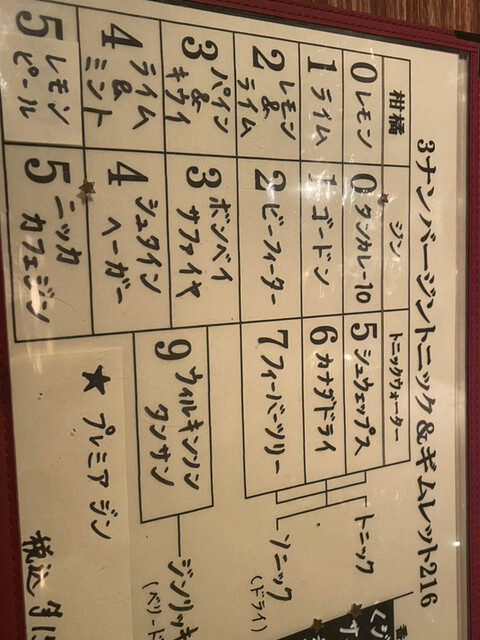 3ナンバージントニック&ギムレット216
柑橘 ジン トニックウォーター
0 レモン 0 タンカレー10 5 シュウェップス
1 ライム 1 ゴードン 6 カナダドライ
2 レモン&ライム 2 ビーフィーター 7 フィーバーツリー
3 パイン&キウイ 3 ボンベイサファイヤ
4 ライム&ミント 4 シュタインヘーガー
5 レモンピール 5 ニッカカフェジン
9 ウィルキンソンタンサン
トニック
ソニック
(ドライ)
ジンリッキ
★ プレミアジン
税込